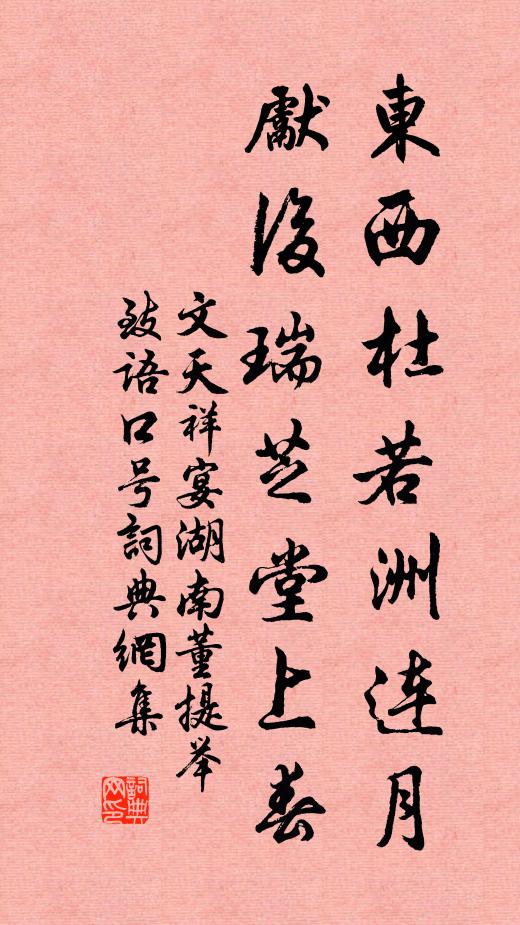 東西杜若洲連月
獻後瑞芝堂上春
文天祥宴湖南董提举
致語口号詞典網集
詞典网印